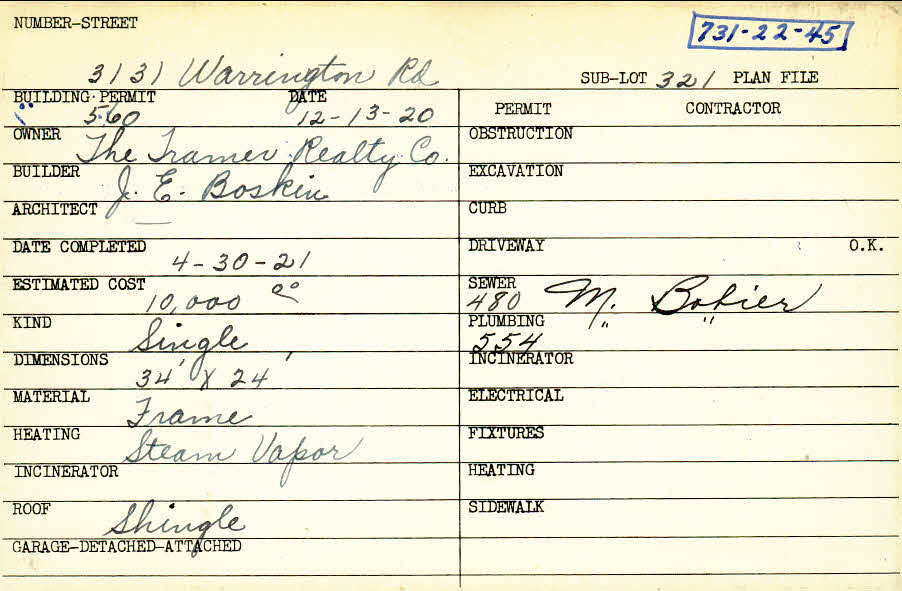 NUMBER-STREET
731-22-45
3131 Warrington Rd
SUB-LOT 321 PLAN FILE
BUILDING PERMIT DATE
560 12-13-20
PERMIT CONTRACTOR
OWNER The Tramer Realty Co.
BUILDER J. E. Boskin
ARCHITECT —
DATE COMPLETED
4-30-21
ESTIMATED COST
10,000 00
KIND Single
DIMENSIONS
34' X 24'
MATERIAL Frame
HEATING Steam Vapor
INCINERATOR
ROOF Shingle
GARAGE-DETACHED-ATTACHED
OBSTRUCTION
EXCAVATION
CURB
DRIVEWAY O.K.
SEWER
480 M. Bobier
PLUMBING " "
554
INCINERATOR
ELECTRICAL
FIXTURES
HEATING
SIDEWALK